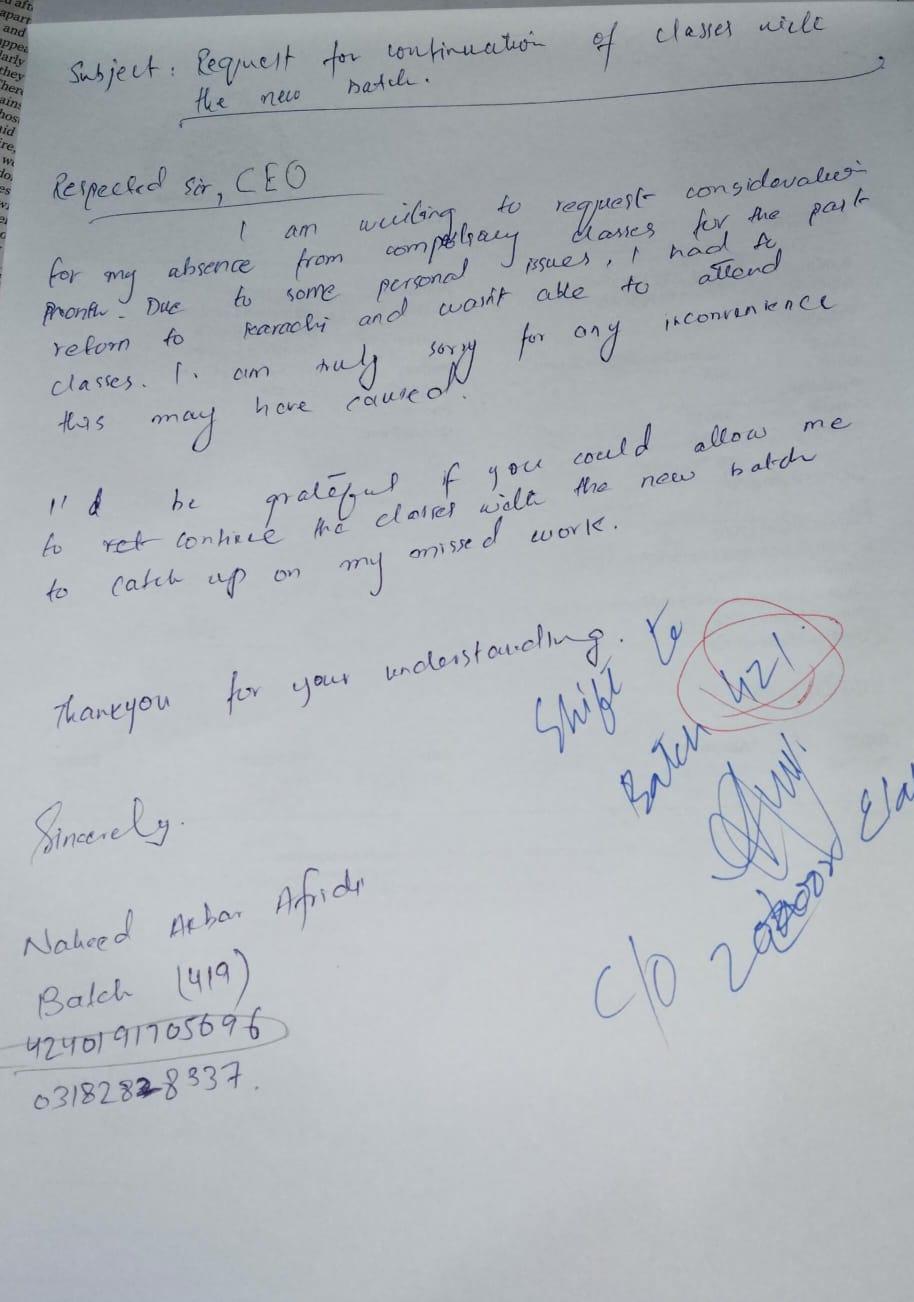 Subject: Request for continuation of classes with
the new batch.
Respected Sir, CEO
I am writing to request consideration
for my absence from compulsary classes for the past
month. Due to some personal issues, I had to
return to Karachi and wasn't able to attend
classes. I am truly sorry for any inconvenience
this may have caused.
I'd be grateful if you could allow me
to ret continue the classes with the new batch
to catch up on my missed work.
Thankyou for your understanding.
Shift to
Batch 421
Sincerely.
Naheed Akbar Afridi
Batch (419)
4240191705696
03182828337.
C/O
apart
and
they